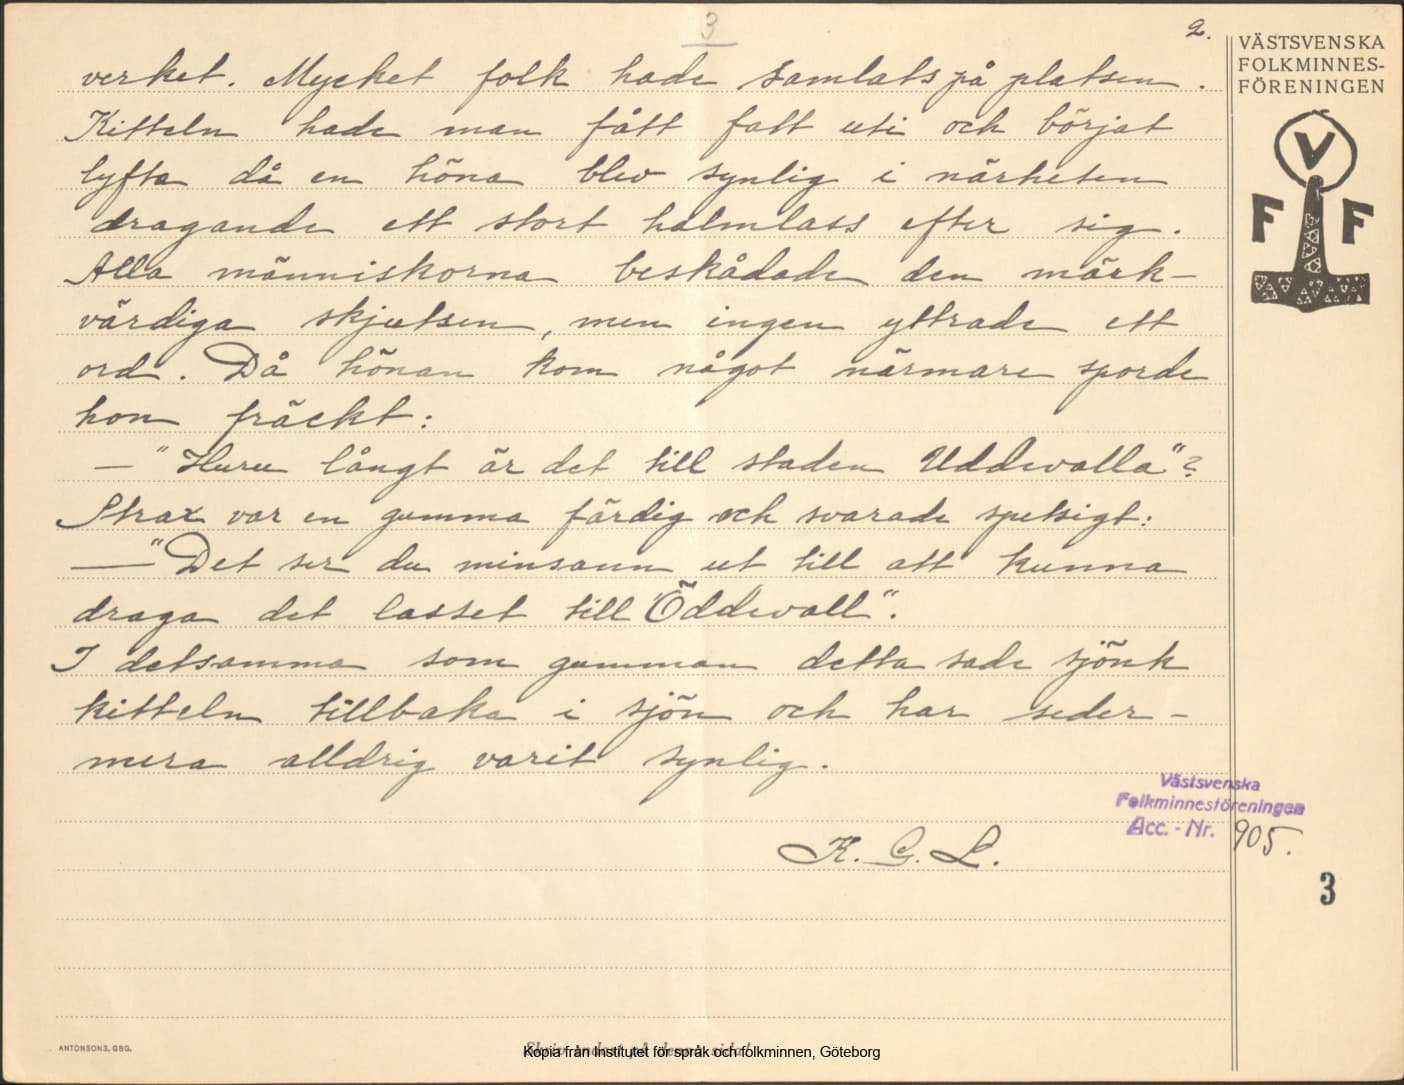 3
2.
VÄSTSVENSKA
FOLKMINNES-
FÖRENINGEN
V
F F
verket. Mycket folk hade samlats på platsen.
Kitteln hade man fått fatt uti och börjat
lyfta då en höna blev synlig i närheten
dragande ett stort halmlass efter sig.
Alla människorna beskådade den märk-
värdiga skjutsen, men ingen yttrade ett
ord. Då hönan kom något närmare sporde
hon fräckt:
— "Huru långt är det till staden Uddevalla"?
Strax var en gumma färdig och svarade spetsigt:
— "Det ser du minsann ut till att kunna
draga det lasset till Öddevall".
I detsamma som gumman detta sade sjönk
kitteln tillbaka i sjön och har seder-
mera alldrig varit synlig.
K. G. L.
Västsvenska
Folkminnesföreningen
Acc. - Nr. 905.
3
ANTONSONS, GBG.
Skriv endast på denna sida!
Kopia från Institutet för språk och folkminnen, Göteborg